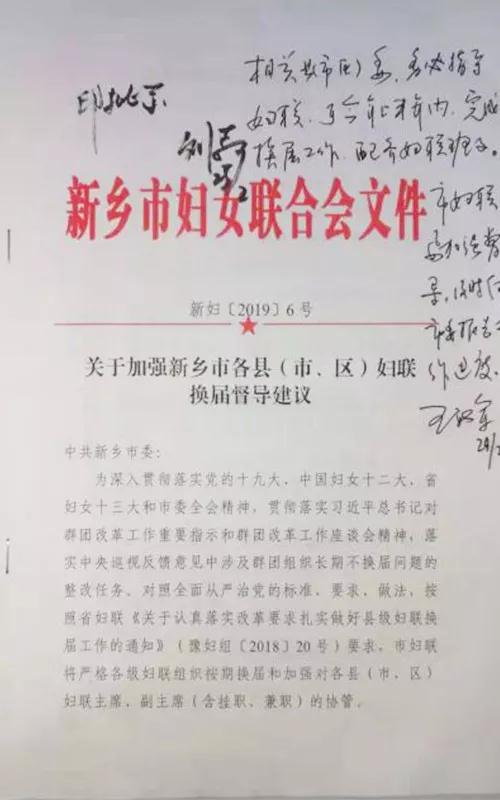 相关县市区委，务必指导
妇联，于今年上半年内，完成
换届工作，配齐妇联班子。
市妇联
印批示
新乡市妇女联合会文件
新妇〔2019〕6号
关于加强新乡市各县（市、区）妇联
换届督导建议
中共新乡市委：
为深入贯彻落实党的十九大、中国妇女十二大、省
妇女十三大和市委全会精神，贯彻落实习近平总书记对
群团改革工作重要指示和群团改革工作座谈会精神，落
实中央巡视反馈意见中涉及群团组织长期不换届问题的
整改任务，对照全面从严治党的标准、要求、做法，按
照省妇联《关于认真落实改革要求扎实做好县级妇联换
届工作的通知》（豫妇组〔2018〕20号）要求，市妇联
将严格各级妇联组织按期换届和加强对各县（市、区）
妇联主席、副主席（含挂职、兼职）的协管。